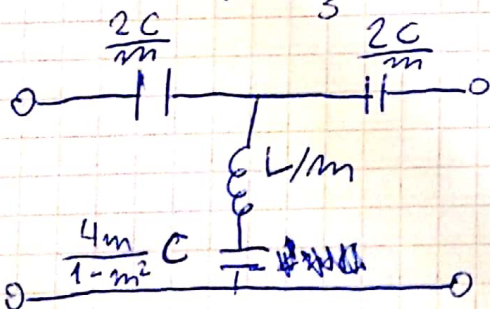 3
2C/m
2C/m
L/m
4m/(1-m²) C